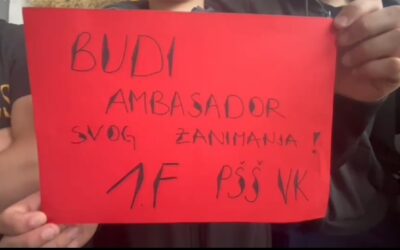 BUDI
AMBASADOR
SVOG ZANIMANJA!
1.F PŠŠ VK